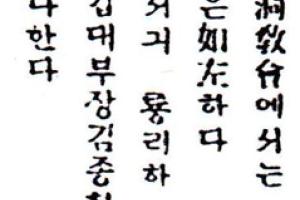 洞敎會에서는
은如左하다
서긔 룡리하
대부장김종
다한다